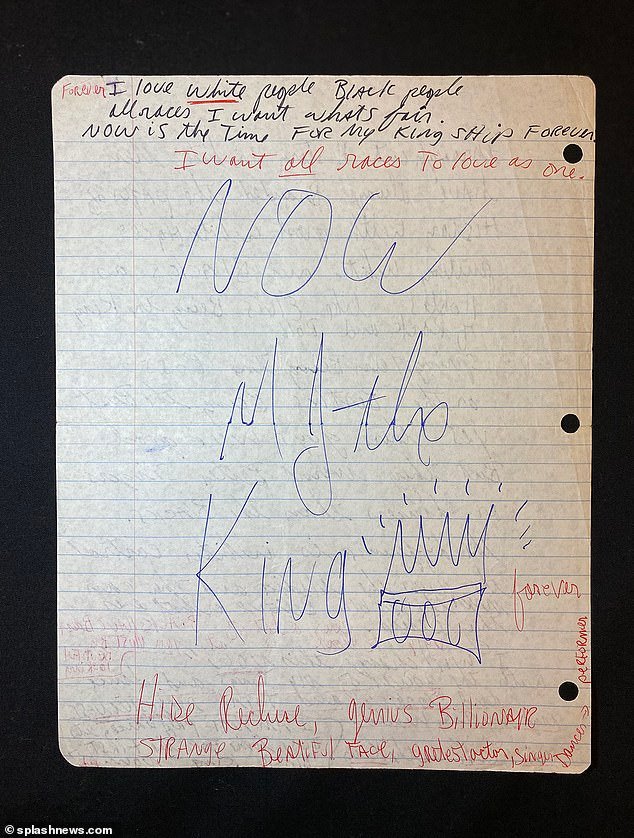 Forever I love White people Black people
all races I want whats fair.
NOW is the Time FOR My King ship Forever.
I want all races To love as one.
NOW
MJ the
King
forever
Hide Recluse, genius Billionaire
STRANGE Beatiful FACE, gretest actor, singer
Dancer performer
© splashnews.com